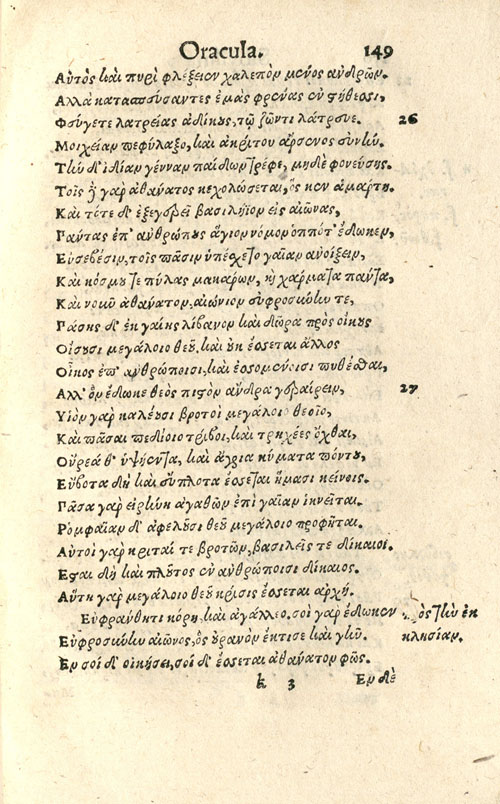 Oracula. 149
Αὐτὸς καὶ πυρὶ φλέξειεν χαλεπὸν μένος ἀνδρῶν.
Ἀλλὰ καταπαύσαντες ἐμὰς φρένας ἐν στήθεσι,
Φεύγετε λατρείας ἀδίκους, τῷ ζῶντι λάτρευε. 26
Μοιχείαν πεφύλαξο, καὶ ἀκρίτου ἄρσενος εὐνήν.
Τὴν δ' ἰδίαν γένναν παίδων τρέφε, μηδὲ φονεύσῃς.
Τοῖς γὰρ ἀθάνατος κεχολώσεται, ὅς κεν ἁμάρτῃ.
Καὶ τότε δ' ἐξεγερεῖ βασιλήϊον εἰς αἰῶνας,
Πάντας ἐπ' ἀνθρώπους ἅγιον νόμον ὁππότ' ἔδωκεν,
Εὐσεβέσιν, τοῖς πᾶσιν ὑπέσχετο γαῖαν ἀνοίξειν,
Καὶ κόσμου τε πύλας μακάρων, καὶ χάρματα πάντα,
Καὶ νοῦν ἀθάνατον, αἰώνιον εὐφροσύνην τε,
Πάσης δ' ἐκ γαίης λίβανον καὶ δῶρα πρὸς οἴκους
Οἴσουσι μεγάλοιο θεοῦ, καὶ οὐκ ἔσσεται ἄλλος
Οἶκος ἐπ' ἀνθρώποισι, καὶ ἐσσομένοισι πυθέσθαι,
Ἀλλ' ὃν ἔδωκε θεὸς πιστὸν ἄνδρα γεραίρειν, 27
Υἱὸν γὰρ καλέουσι βροτοὶ μεγάλοιο θεοῖο,
Καὶ πᾶσαι πεδίοιο τρίβοι, καὶ τρηχέες ὄχθαι,
Οὔρεά θ' ὑψήεντα, καὶ ἄγρια κύματα πόντου,
Εὔβοτα δὴ καὶ εὔπλοτα ἔσσεται ἤμασι κείνοις.
Πᾶσα γὰρ εἰρήνη ἀγαθῶν ἐπὶ γαῖαν ἱκνεῖται.
Ρομφαίαν δ' ἀφελοῦσι θεοῦ μεγάλοιο προφῆται.
Αὐτοὶ γὰρ κριταί τε βροτῶν, βασιλεῖς τε δίκαιοι.
Ἔσται δὴ καὶ πλοῦτος ἐν ἀνθρώποισι δίκαιος.
Αὕτη γὰρ μεγάλοιο θεοῦ κρίσις ἔσσεται ἀρχή.
Εὐφράνθητι κόρη, καὶ ἀγάλλεο. σοὶ γὰρ ἔδωκεν πρὸς τὴν ἐκ
Εὐφροσύνην αἰῶνος, ὃς οὐρανὸν ἔκτισε καὶ γῆν. κλησίαν.
Ἐν σοὶ δ' οἰκήσει, σοὶ δ' ἔσσεται ἀθάνατον φῶς.
k 3 Ἐν δὲ